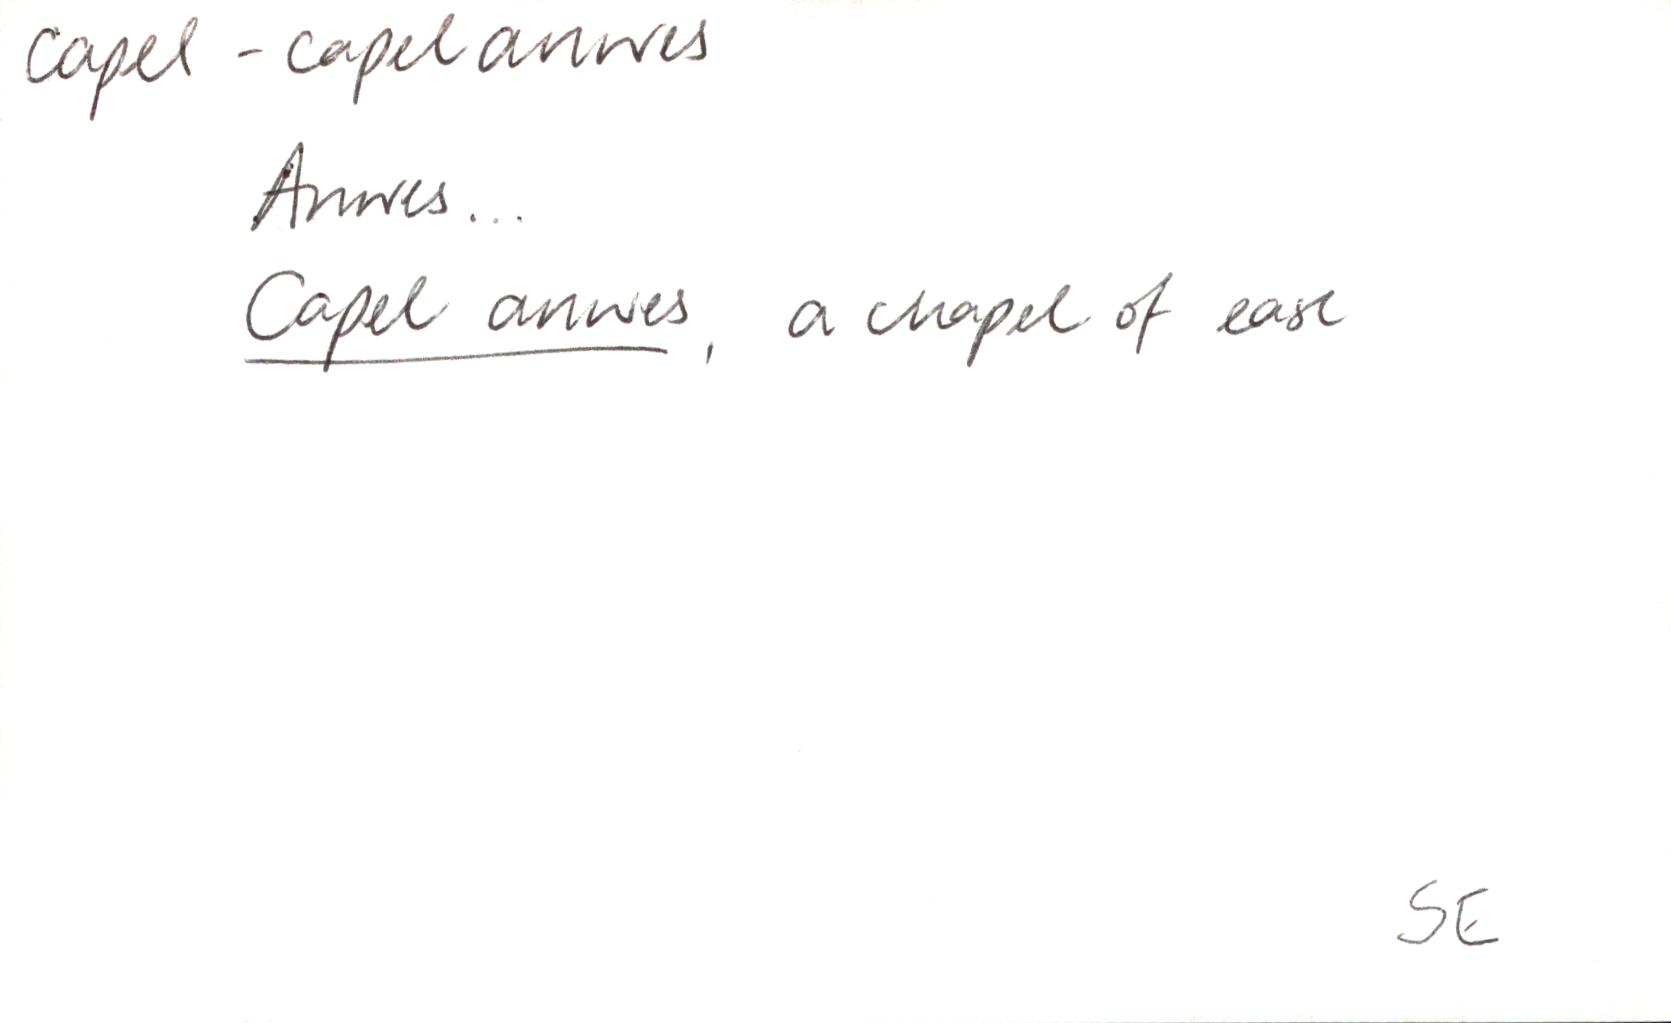 capel - capel anwes
Anwes...
Capel anwes, a chapel of ease
SE